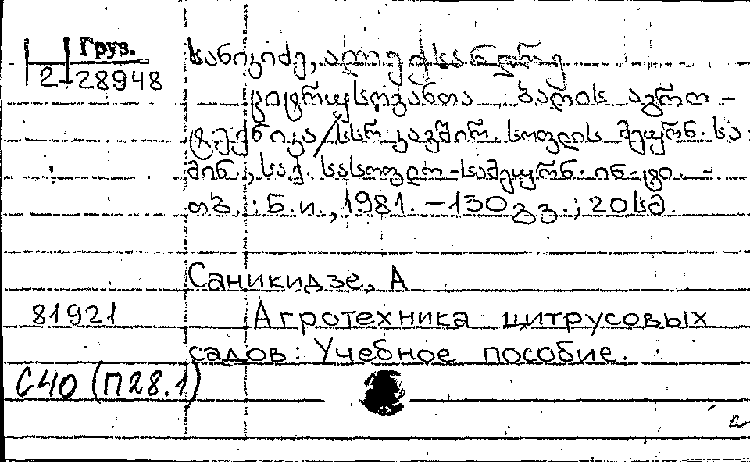 Груз.
2-28948
სანიკიძე, ალექსანდრე
ციტრუსოვანთა ბაღის აგრო-
ტექნიკა/სსრ კავშირ. სოფლის მეურნ. სა-
მინ., საქ. სასოფლო-სამეურნ. ინ-ტი. -
თბ.: Б.и., 1981. - 130 გვ.; 20 სმ.
Саникидзе, А
81921
Агротехника цитрусовых
садов: Учебное пособие.
С40 (П28.1)